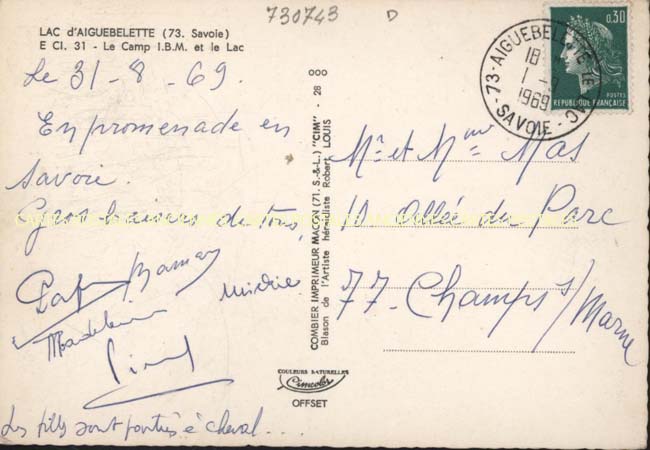 730743 D
LAC d'AIGUEBELETTE (73. Savoie)
E CI. 31 - Le Camp I.B.M. et le Lac
Le 31-8-69.
En promenade en
Savoie.
Gros baisers de tous,
Maman
Mireille
Madeleine
Les fills sont parties à cheval...
COMBIER IMPRIMEUR MACON (71. S.-&-L.) "CIM" - 28 000
Blason de l'Artiste héraldiste Robert LOUIS
COULEURS NATURELLES
Cimcolor
OFFSET
73-AIGUEBELETTE
18
1 -
1969
SAVOIE
0,30
POSTES
REPUBLIQUE FRANÇAISE
Mr et Mme Mas
11 Allée du Parc
77-Champs s/Marne